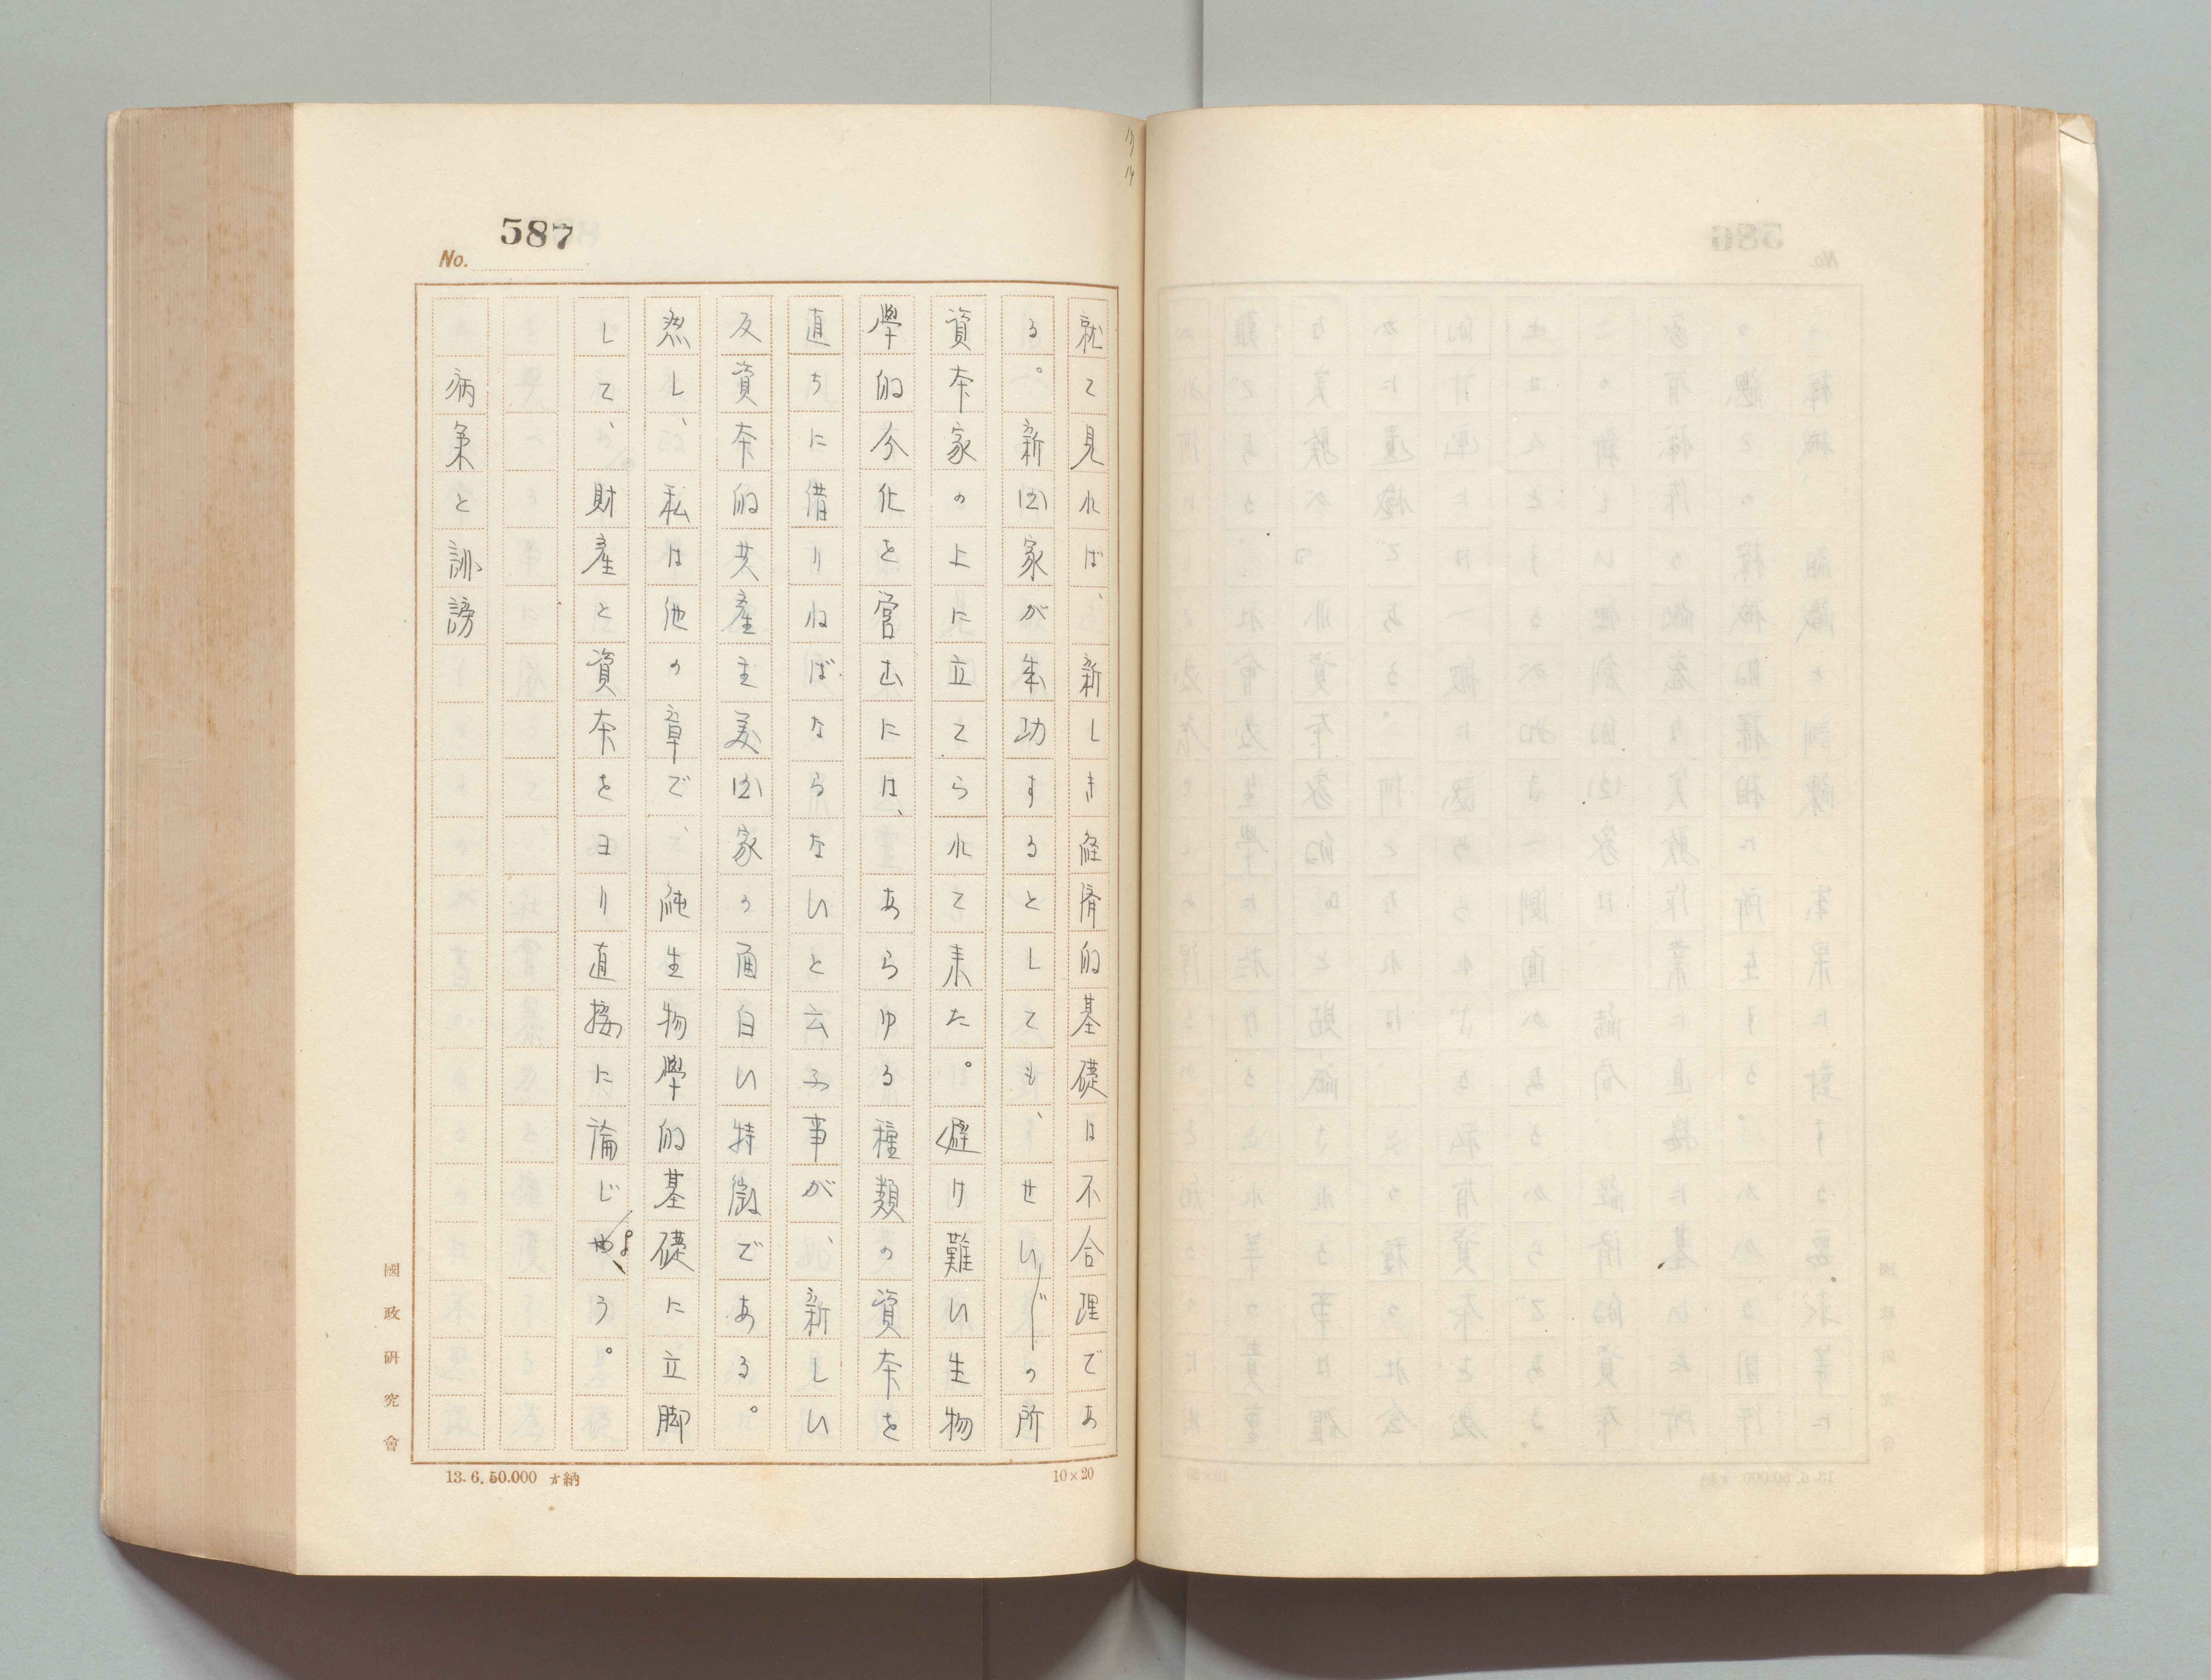 587
No.
就て見れば、新しき経済的基礎は不合理であ
る。新国家が成功するとしても、せいじの所
資本家の上に立てられて来た。避け難い生物
學的分化を営むには、あらゆる種類の資本を
直ちに借りねばならないと云ふ事が、新しい
反資本的共産主義国家の面白い特徴である。
然し、私は他の章で、純生物學的基礎に立脚
して、財産と資本をヨリ直接に論じよう。
病気と誹謗
國政研究會
13.6.50.000 納
10×20